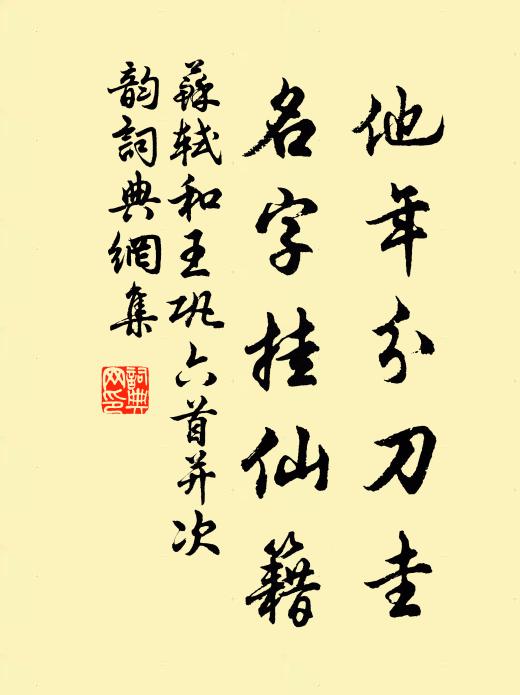 他年分刀圭
名字挂仙籍
蘇軾和王巩六首并次
韵詞典網集
詞典
网印